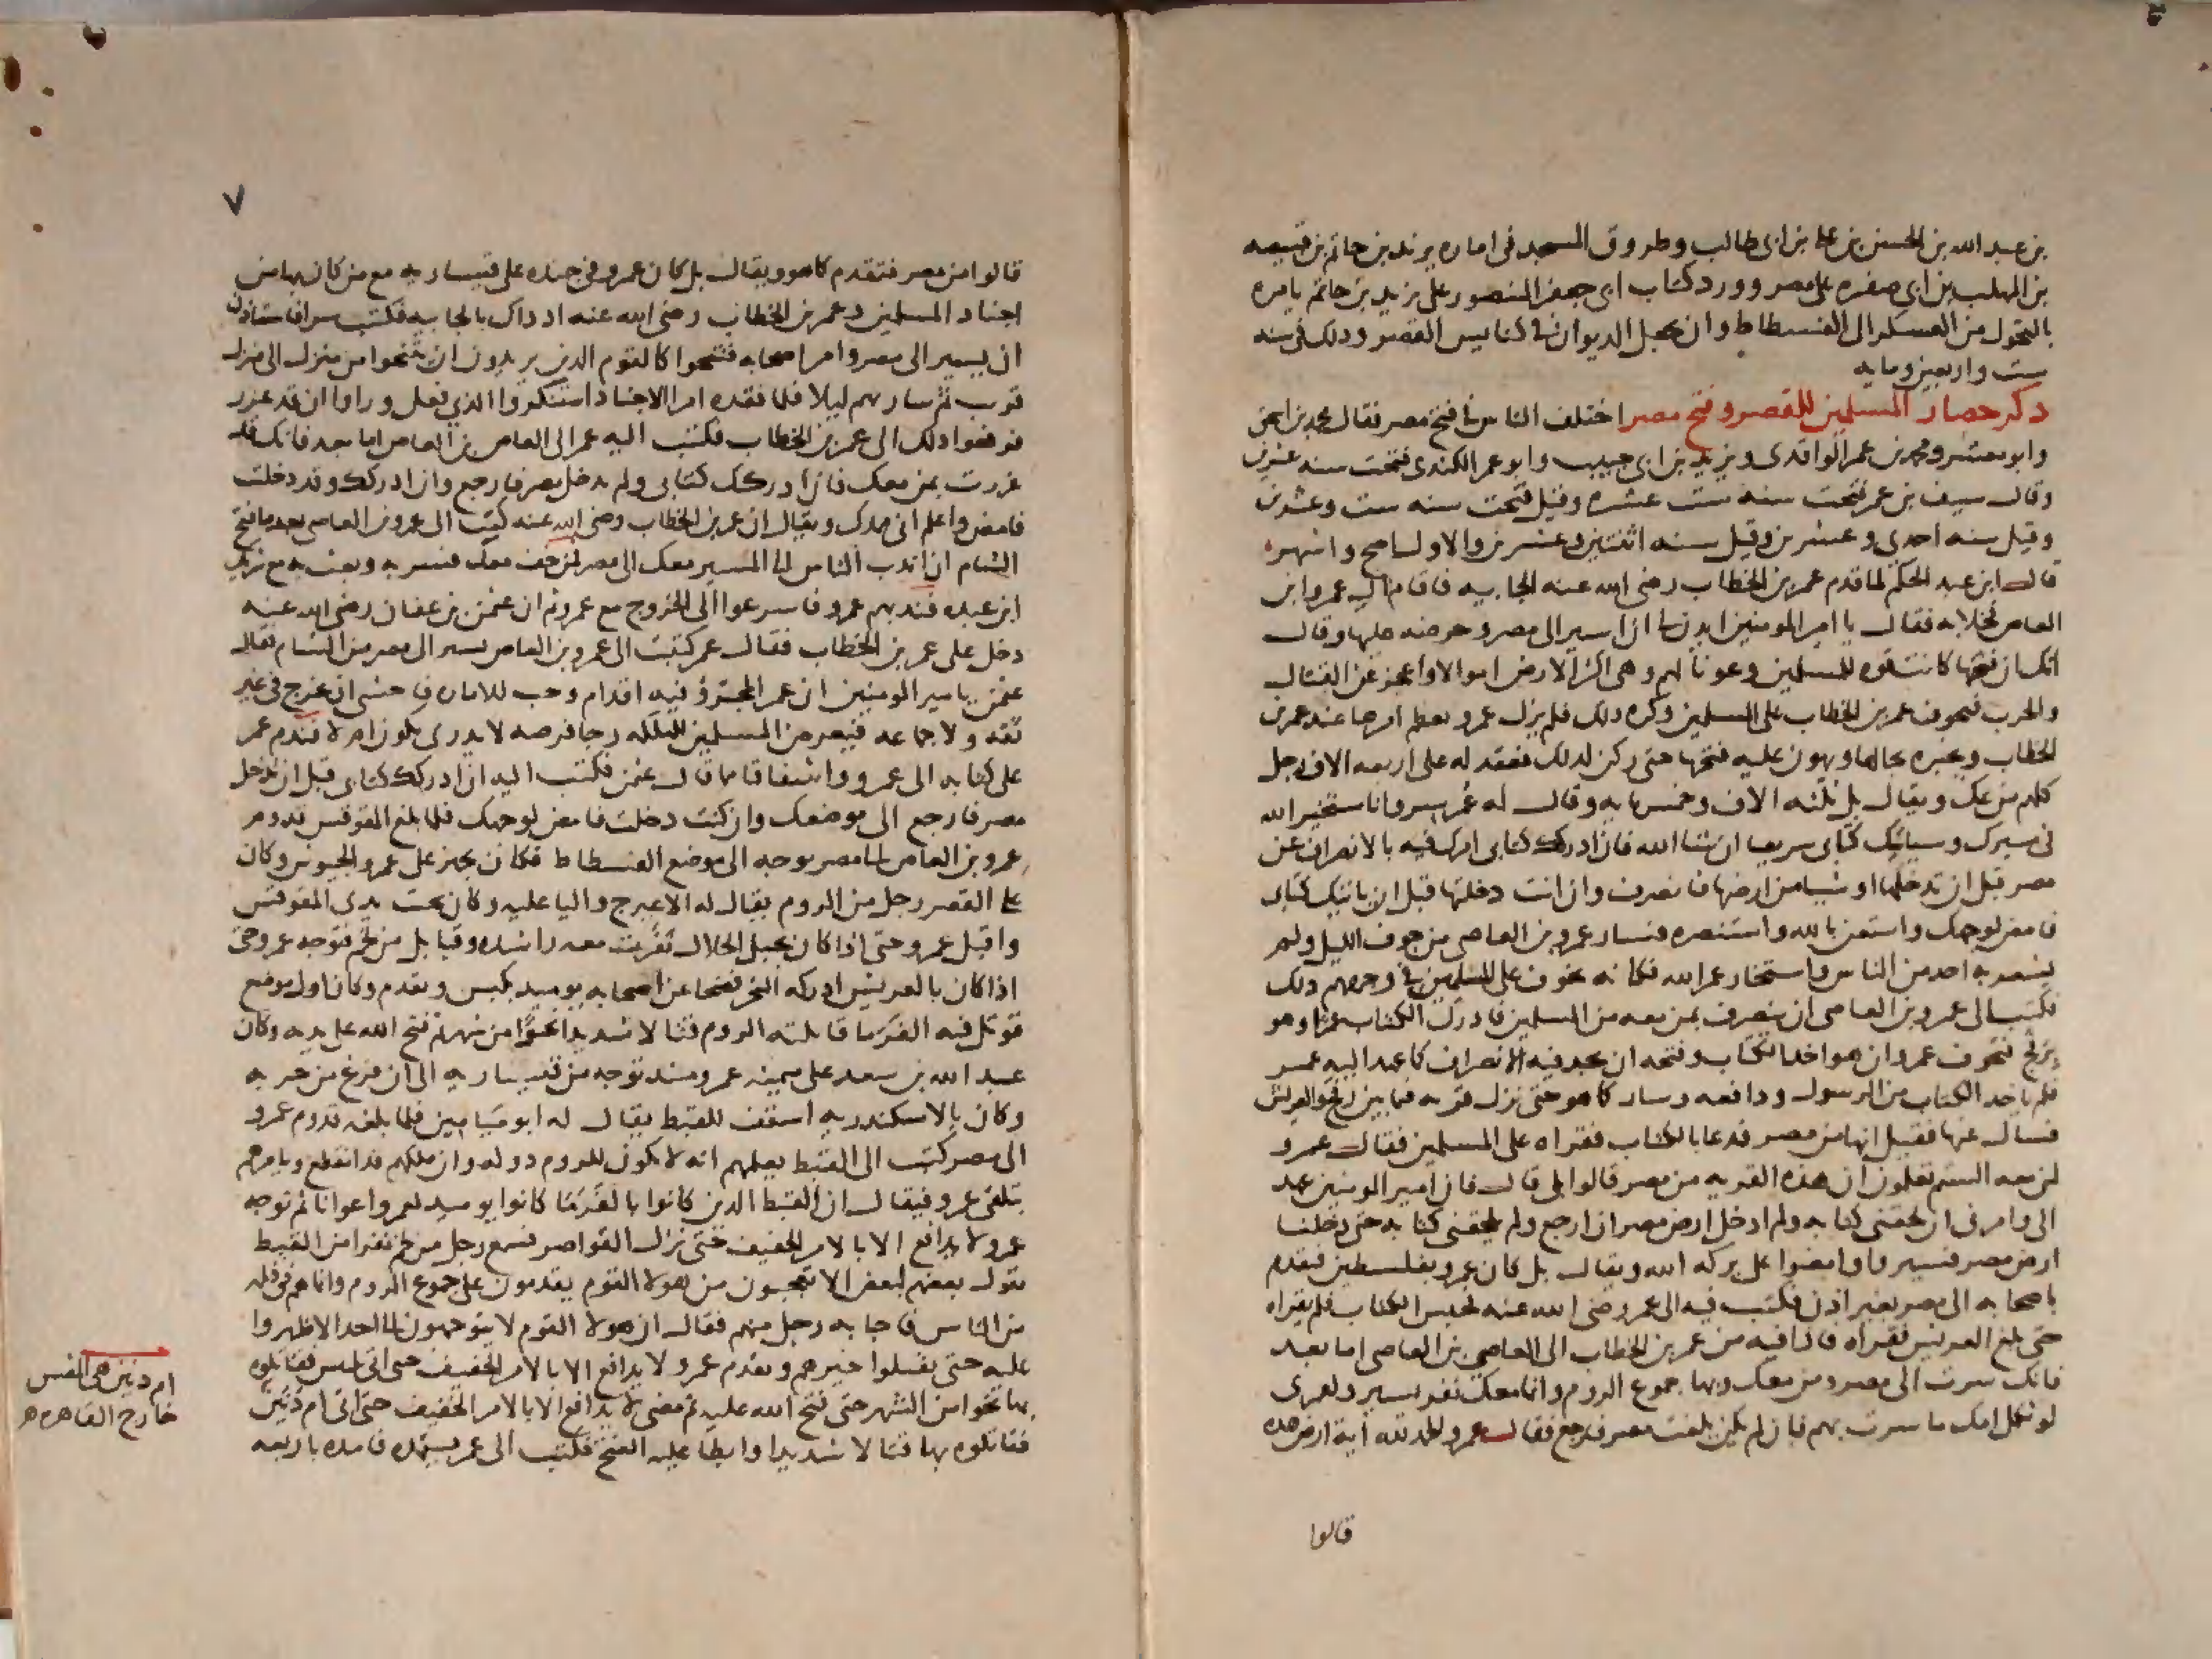 بن عبد الله بن الحسن بن على بن ابى طالب وطروق المسجد فى اماره يزيد بن حاتم بن قبيصه
بن المهلب بن ابى صفره على مصر وورد كتاب ابى جعفر المنصور على يزيد بن حاتم يامره
بالتحول من العسكر الى الفسطاط وان يجعل الديوان فى كنايس القصر ودلك فى سنه
ست واربعين ومايه
دكر حصار المسلمين للقصر وفتح مصر اختلف الناس فى فتح مصر فقال محمد بن اسحق
وابو معشر ومحمد بن عمر الواقدى ويزيد بن ابى حبيب وابو عمر الكندى فتحت سنه عشرين
وقال سيف بن عمر فتحت سنه ست عشره وقيل فتحت سنه ست وعشرين
وقيل سنه احدى وعشرين وقيل سنه اثنتين وعشرين والاول اصح واشهر
قال ابن عبد الحكم لما قدم عمر بن الخطاب رضى الله عنه الجابيه قام اليه عمرو ابن
العاص فخلا به فقال يا امير المومنين ايدن لى ان اسير الى مصر وحرضه عليها وقال
انك ان فتحتها كانت قوه للمسلمين وعونا لهم وهى اكثر الارض اموالا واعجز عن القتال
والحرب فتخوف عمر بن الخطاب على المسلمين وكره دلك فلم يزل عمرو يعظم امرها عند عمر بن
الخطاب ويخبره بحالها ويهون عليه فتحها حتى ركن لدلك فعقد له على اربعه الاف رجل
كلهم من عك ويقال بل ثلثه الاف وخمس مايه وقال له عمر سر وانا مستخير الله
فى سيرك وسياتيك كتابى سريعا ان شا الله فان ادركك كتابى امرك فيه بالانصراف عن
مصر قبل ان تدخلها او شيا من ارضها فانصرف وان انت دخلتها قبل ان ياتيك كتابى
فامض لوجهك واستعن بالله واستنصره فسار عمرو بن العاص من جوف الليل ولم
يشعر به احد من الناس واستخار عمر الله فكانه تخوف على المسلمين فى وجههم دلك
فكتب الى عمرو بن العاصى ان ينصرف بمن معه من المسلمين فادرك الكتاب عمرا وهو
برفح فتخوف عمرو ان هو اخد الكتاب وفتحه ان يجد فيه الانصراف كما عهد اليه عمر
فلم ياخد الكتاب من الرسول ودافعه وسار كما هو حتى نزل قريه فيما بين رفح والعريش
فسال عنها فقيل انها من مصر فدعا بالكتاب فقراه على المسلمين فقال عمرو
لمن معه الستم تعلمون ان هذه القريه من مصر قالوا بلى قال فان امير المومنين عهد
الى وامرنى ان لحقنى كتابه ولم ادخل ارض مصر ان ارجع ولم يلحقنى كتابه حتى دخلنا
ارض مصر فسيروا وامضوا على بركه الله ويقال بل كان عمرو بفلسطين فتقدم
باصحابه الى مصر بغير اذن فكتب فيه الى عمر رضى الله عنه فحبس الكتاب فلم يقراه
حتى بلغ العريش فقراه فاذا فيه من عمر بن الخطاب الى العاصى بن العاصى اما بعد
فانك سرت الى مصر ومن معك وبها جموع الروم وانما معك نفر يسير ولعمرى
لو ثكل امك ما سرت بهم فان لم يكن بلغت مصر فارجع فقال عمرو الحمد لله اية ارض هده
قالوا
٧
قالوا من مصر فتقدم كما هو ويقال بل كان عمرو فى جنده على قيساريه مع من كان بها من
اجناد المسلمين وعمر بن الخطاب رضى الله عنه اد داك بالجابيه فكتب سرا فاستاذن
ان يسير الى مصر وامر اصحابه فتنحوا كالقوم الدين يريدون ان يتنحوا من منزل الى منزل
قريب ثم سار بهم ليلا فلما فقده امرا الاجناد استنكروا الذى فعل وراوا ان قد غرر
فرفعوا دلك الى عمر بن الخطاب فكتب اليه عمر الى العاص بن العاص اما بعد فانك قد
غررت بمن معك فان ادركك كتابى ولم تدخل مصر فارجع وان ادركك وقد دخلت
فامض واعلم انى ممدك ويقال ان عمر بن الخطاب رضى الله عنه كتب الى عمرو بن العاصى بعد ما فتح
الشام ان اندب الناس الى المسير معك الى مصر فمن خف معك فسر به وبعث به مع شريك
ابن عبده فندبهم عمرو فاسرعوا الى الخروج مع عمرو ثم ان عثمن بن عفان رضى الله عنه
دخل على عمر بن الخطاب فقال عمر كتبت الى عمرو بن العاص يسير الى مصر من الشام فقال
عثمن يا امير المومنين ان عمرا لمجترؤ وفيه اقدام وحب للاماره فاخشى ان يخرج فى غير
ثقه ولا جماعه فيعرض المسلمين للهلكه رجا فرصه لا يدرى تكون ام لا فندم عمر
على كتابه الى عمرو واشفاقا مما قال عثمن فكتب اليه ان ادركك كتابى قبل ان تدخل
مصر فارجع الى موضعك وان كنت دخلت فامض لوجهك فلما بلغ المقوقس قدوم
عمرو بن العاص الى مصر توجه الى موضع الفسطاط فكان يجهز على عمرو الجيوش وكان
على القصر رجل من الروم يقال له الاعيرج واليا عليه وكان تحت يدى المقوقس
واقبل عمرو حتى اذا كان بجبل الحلال نفرت معه راشده وقبايل من لخم فتوجه عمرو حتى
اذا كان بالعريش ادركه النحر فضحا عن اصحابه يوميد بكبش وتقدم وكان اول موضع
قوتل فيه الفرما قاتلته الروم قتالا شديدا نحوا من شهر ثم فتح الله على يديه وكان
عبد الله بن سعد على ميمنه عمرو منذ توجه من قيساريه الى ان فرغ من حربه
وكان بالاسكندريه اسقف للقبط يقال له ابو ميامين فلما بلغه قدوم عمرو
الى مصر كتب الى القبط يعلمهم انه لا تكون للروم دوله وان ملكهم قد انقطع ويامرهم
بتلقى عمرو فيقال ان القبط الدين كانوا بالفرما كانوا يوميد لعمرو اعوانا ثم توجه
عمرو لا يدافع الا بالامر الخفيف حتى نزل القواصر فسمع رجل من لخم نفرا من القبط
يقول بعضهم لبعض الا تعجبون من هولا القوم يقدمون على جموع الروم وانما هم فى قله
من الناس فاجابه رجل منهم فقال ان هولا القوم لا يتوجهون الى احد الا ظهروا
عليه حتى يقتلوا خيرهم وتقدم عمرو لا يدافع الا بالامر الخفيف حتى اتى بلبيس فقاتلوه
بها نحوا من الشهر حتى فتح الله عليه ثم مضى لا يدافع الا بالامر الخفيف حتى اتى ام دنين
فقاتلوه بها قتالا شديدا وابطا عليه الفتح فكتب الى عمر يستمده فامده باربعه
ام دنين هى المقس
خارج القاهره